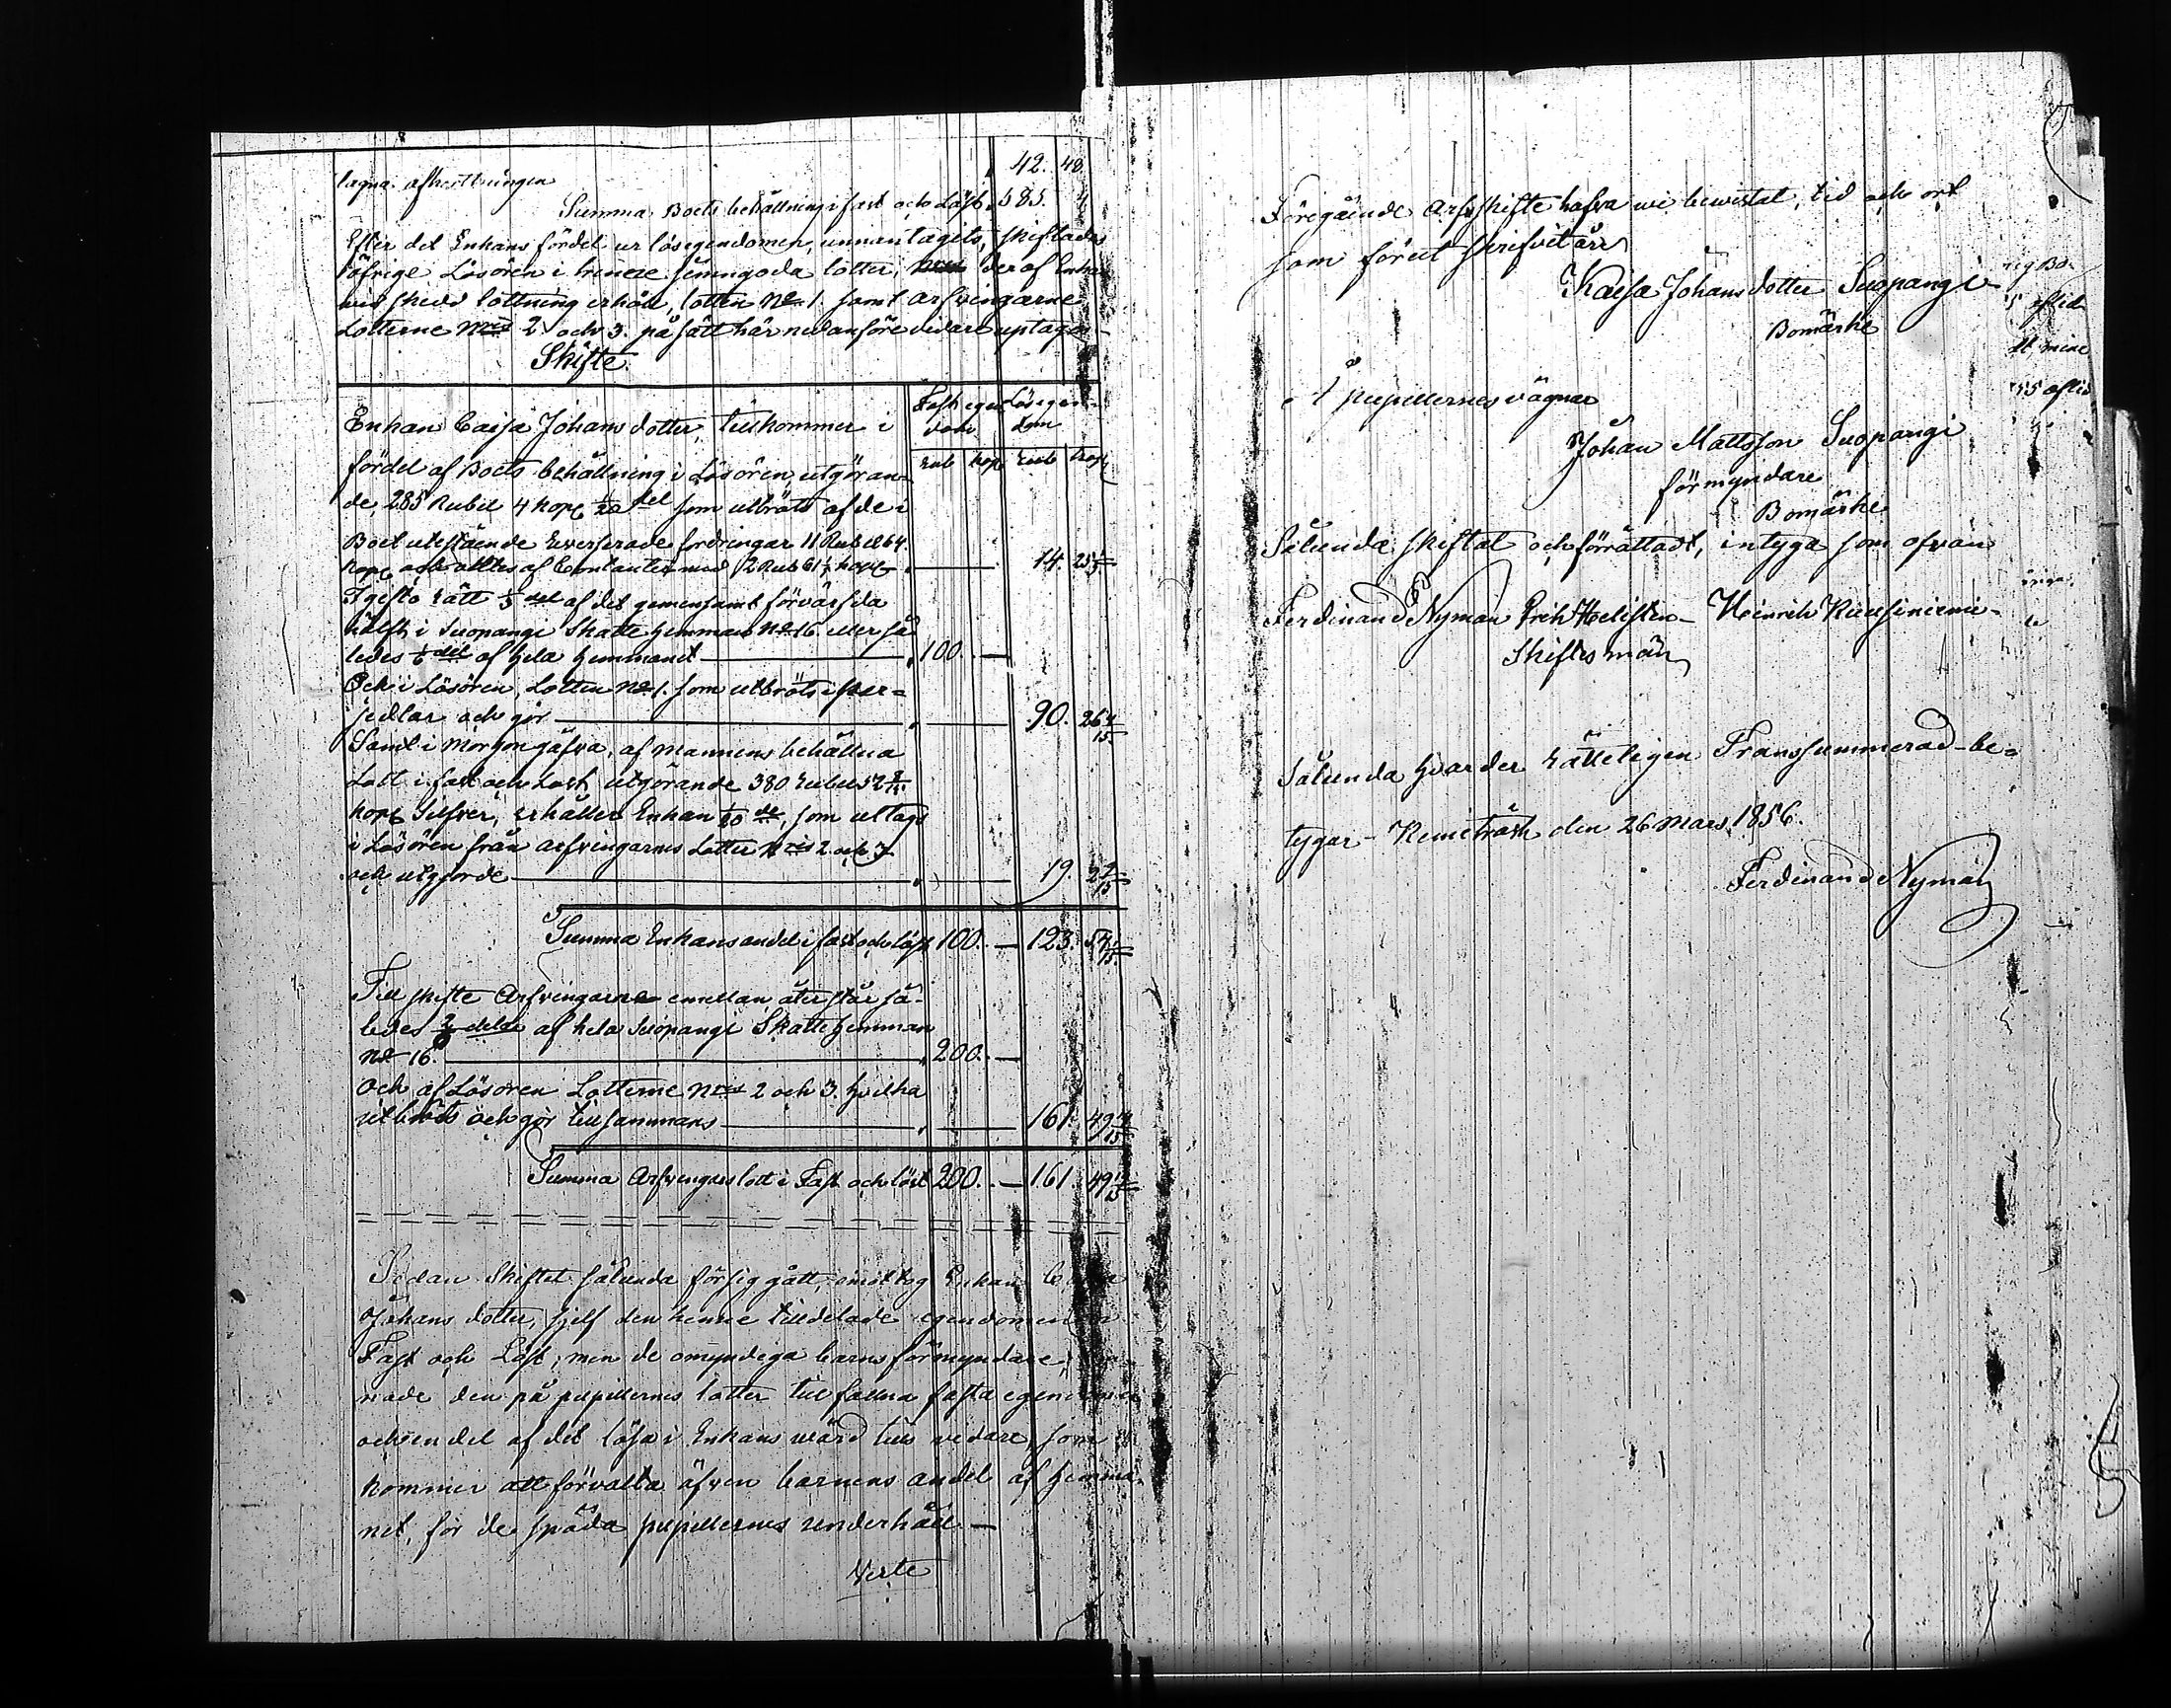 lagna afkortningen 42. 48
Summa Boets behållning i fast och Löst 585. 4
Efter det Enkans fördel ur lösegendomen unnantagits, skiftades
öfrige Lösören i trenne jemngoda lotter, deraf Enkan
vid skedd lottning erhöll, lotten No 1. samt arfvingarne
Lotterne Nris 2. och 3. på sätt här nedanföre vidare uptages
Skifte.
Fast egendom Lösegendom
Enkan Caisa Johansdotter, tillkommer i
Rub kop Rub kop
fördel af Boets behållning i Lösören, utgöran-
de, 285 Rubel 4 kop 1/20 del som utbröts af de i
Boet utestående Reverserade fordringar 11 Rub 64
kop och alltes af Contanter med 2 Rub 61 1/5 kop 14. 25 1/5
I gifto rätt 1/3 del af det gemensamt förvärfda
hälft i Suopangi Skatte hemman No 16. eller så
ledes 1/6 del af hela hemmanet 100. —
Och i Lösören, Lotten No 1. som utbröts i per-
sedlar och gör 90. 26 4/15
Samt i Morgongåfva, af mannens behållna
Lott i fast och Löst, utgörande 380 Rubel 52
kop Silfver, erhåller Enkan 1/20 de, som uttags
i Lösören från arfvingarnes Lotter Nris 2 och 3
och utgjorde 19. 2 9/15
Summa Enkans andel i fast och löst 100. — 123. 54 1/15
Till skifte Arfvingarne emellan återstår så-
ledes 2/6 delar af hela Suopangi Skattehemman
No 16. 200. —
Och af Lösören Lotterne Nris 2 och 3. hvilka
utbröts och gör tillsammans 161. 49 14/15
Summa Arfvingars lott i Fast och löst 200. — 161. 49 14/15
Sedan Skiftet sålunda försiggått, emottog Enkan
Johansdotter, sjelf den henne tilldelade egendomen
Fast och Löst; men de omyndiga barns förmyndare,
nade den på pupillernes lotter tillfallna fasta egendomen
och en del af det lösa i Enkans vård tills vidare, som
kommer att förvalta äfven barnens andel af hemma-
net, för de späda pupillernes underhåll. —
Verte
Föregående Arfskifte hafva vi bevistat, tid och ort
som förut skrifvit är
Kaisa Johansdotter Suopangi
Bomärke
Å pupillernes vägnar
Johan Mattsson Suopangi
förmyndare
Bomärke
Sålunda skiftat och förrättadt, intyga som ofvan
Ferdinand Nyman Erik Helisten Heinrik Ruusiniemi
Skiftes män
Sålunda hvarder rätteligen Transsummerad be-
tygar — Kemiträsk den 26 Mars 1856.
Ferdinand Nyman